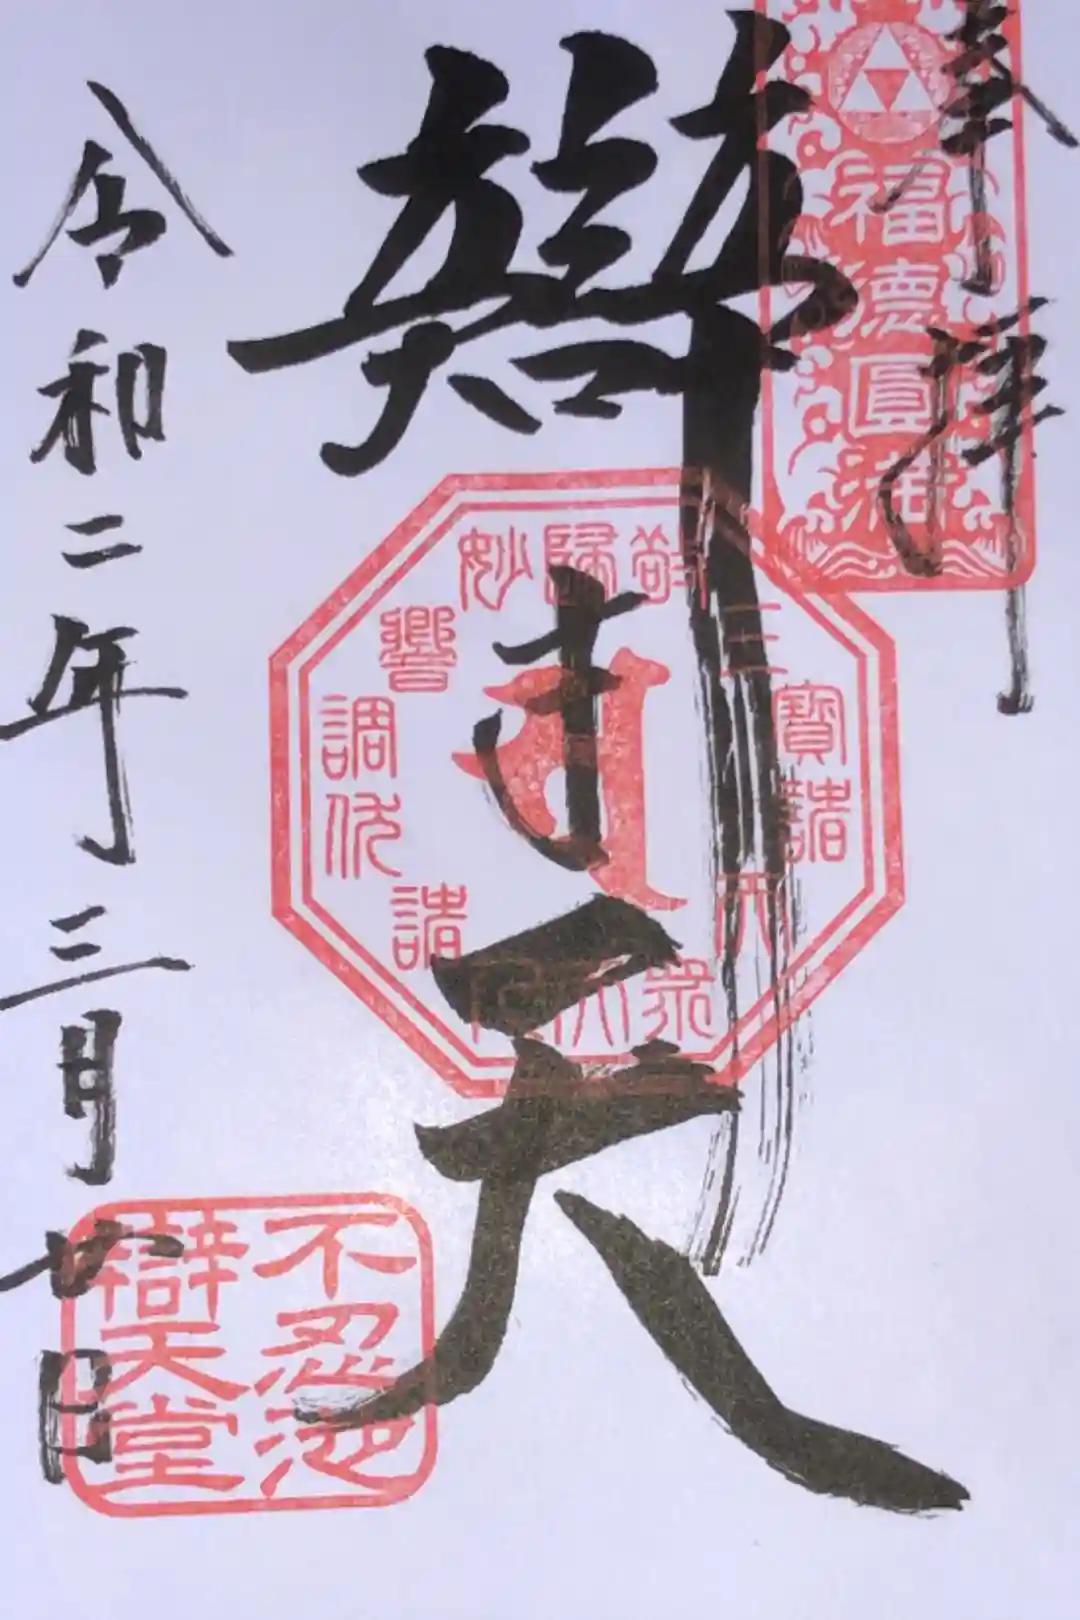 奉拝
福徳圓満
辯才天
敬帰三寳諸天衆
妙響調伏諸
不忍池
辯天堂
令和二年三月廿日